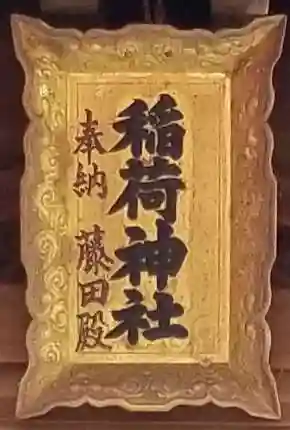 稲荷神社
奉納 藤田殿